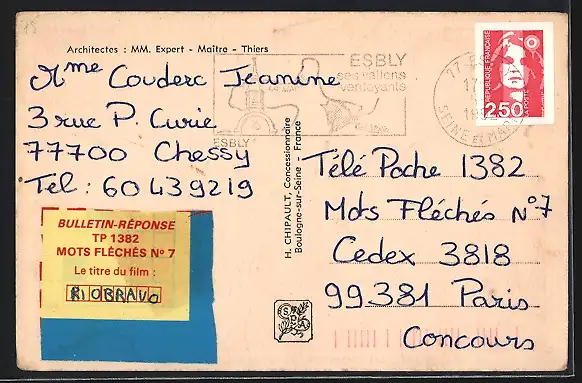 Architectes : MM. Expert - Maître - Thiers
Mme Couderc Jeanine
3 rue P. Curie
77700 Chessy
Tel : 60 43 92 19
ESBLY
ses vallons
verdoyants
ESBLY
77 ESBLY
17
SEINE ET MARNE
RÉPUBLIQUE FRANÇAISE
2,50
LA POSTE
H. CHIPAULT, Concessionnaire
Boulogne-sur-Seine - France
Télé Poche 1382
Mots Fléchés N°7
Cedex 3818
99381 Paris
Concours
BULLETIN-RÉPONSE
TP 1382
MOTS FLÉCHÉS N° 7
Le titre du film :
RIOBRAVO